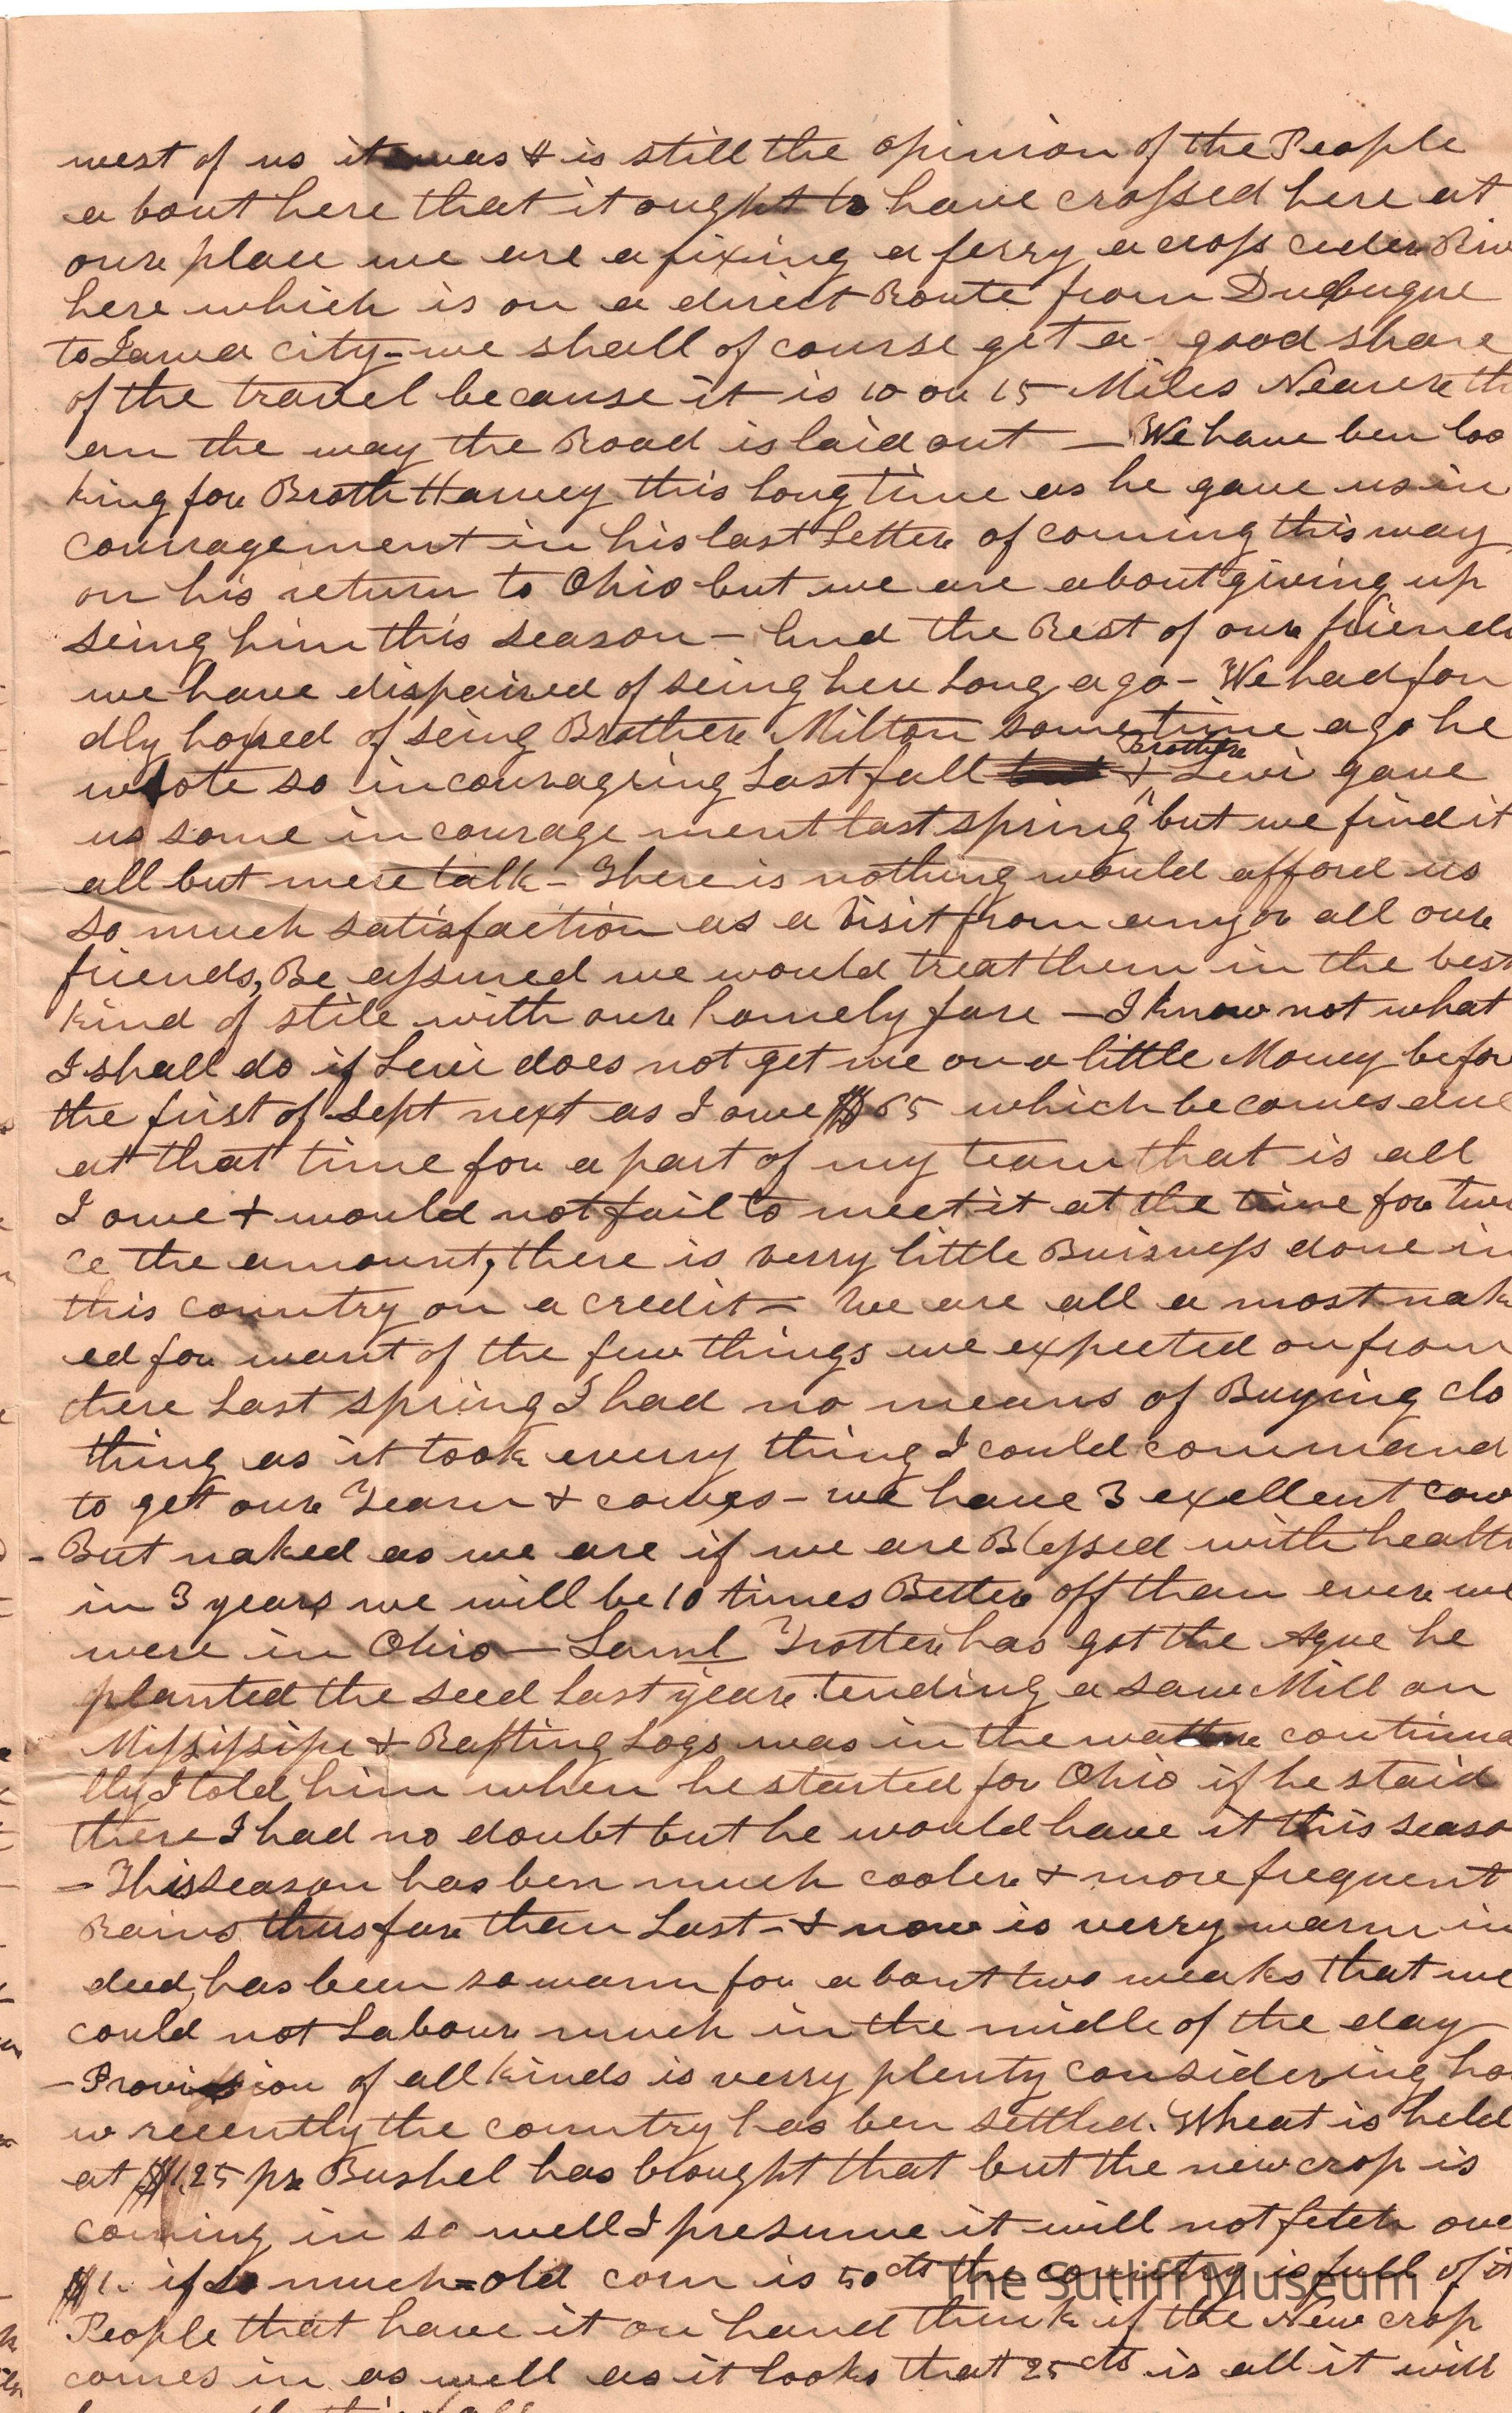 west of us it was & is still the opinion of the People
a bout here that it ought to have crossed here at
oure place we are a fixing a ferry a cross ceder Riv
here which is on a direct Route from Dubuque
to Iawa city - we shall of course get a good share
of the travel because it is 10 or 15 Miles Nearere th
an the way the Road is laid out — We have ben loo
king for Broth Harvey this long time as he gave us in
couragement in his last Letter of coming this way
on his return to Ohio but we are about giving up
seing him this season - And the Rest of oure friends
we have dispaired of seing here long ago - We had fon
dly hoped of seing Brothere Milton some time ago he
wrote so incouragring Last fall & Brothere Levi gave
us some in courage ment last spring but we find it
all but mere talk - There is nothing would afford us
so much satisfaction as a visit from any or all oure
friends, Be assured we would treat them in the best
kind of stile with oure homely fare — I know not what
I shall do if Levi does not get me on a little Money befor
the first of Sept next as I owe $65 which becomes due
at that time for a part of my team that is all
I owe & would not fail to meet it at the time for twi
ce the amount, there is verry little Buisness done in
this country on a credit - We are all a most nak
ed for want of the few things we expected on from
there Last spring I had no means of Buying clo
thing as it took every thing I could command
to get oure Team & cows - we have 3 exellent cow
- But naked as we are if we are Blessed with health
in 3 years we will be 10 times Better off than evere we
were in Ohio — Saml Trotter has got the Ague he
planted the seed Last yeare tending a saw Mill on
Missisipi & Rafting Logs was in the watere continua
lly I told him when he started for Ohio if he staid
there I had no doubt but he would have it this seaso
- This season has ben much coolere & more frequent
Rains thus fare than Last - & now is verry warm in
deed, has been so warm for a bout two weaks that we
could not Laboure much in the midle of the day
- Provision of all kinds is verry plenty considering ho
w recently the country has ben settled. Wheat is held
at $1.25 pr Bushel has brought that but the new crop is
coming in so well I presume it will not fetch ove
$1. if so much - old corn is 50 cts the country is full of it
People that have it on hand think if the New crop
comes in as well as it looks that 25 cts is all it will
The Sutliff Museum